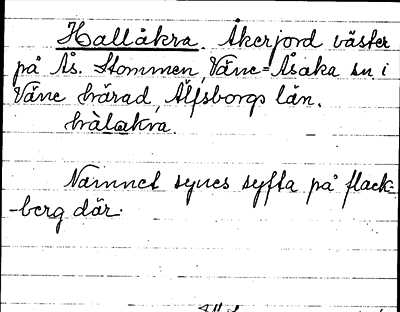 Hallåkra. Åkerjord väster
på Ås. Stommen, Väne-Åsaka sn i
Väne härad, Älfsborgs län.
hàlakra.
Namnet synes syfta på flack-
-berg där.